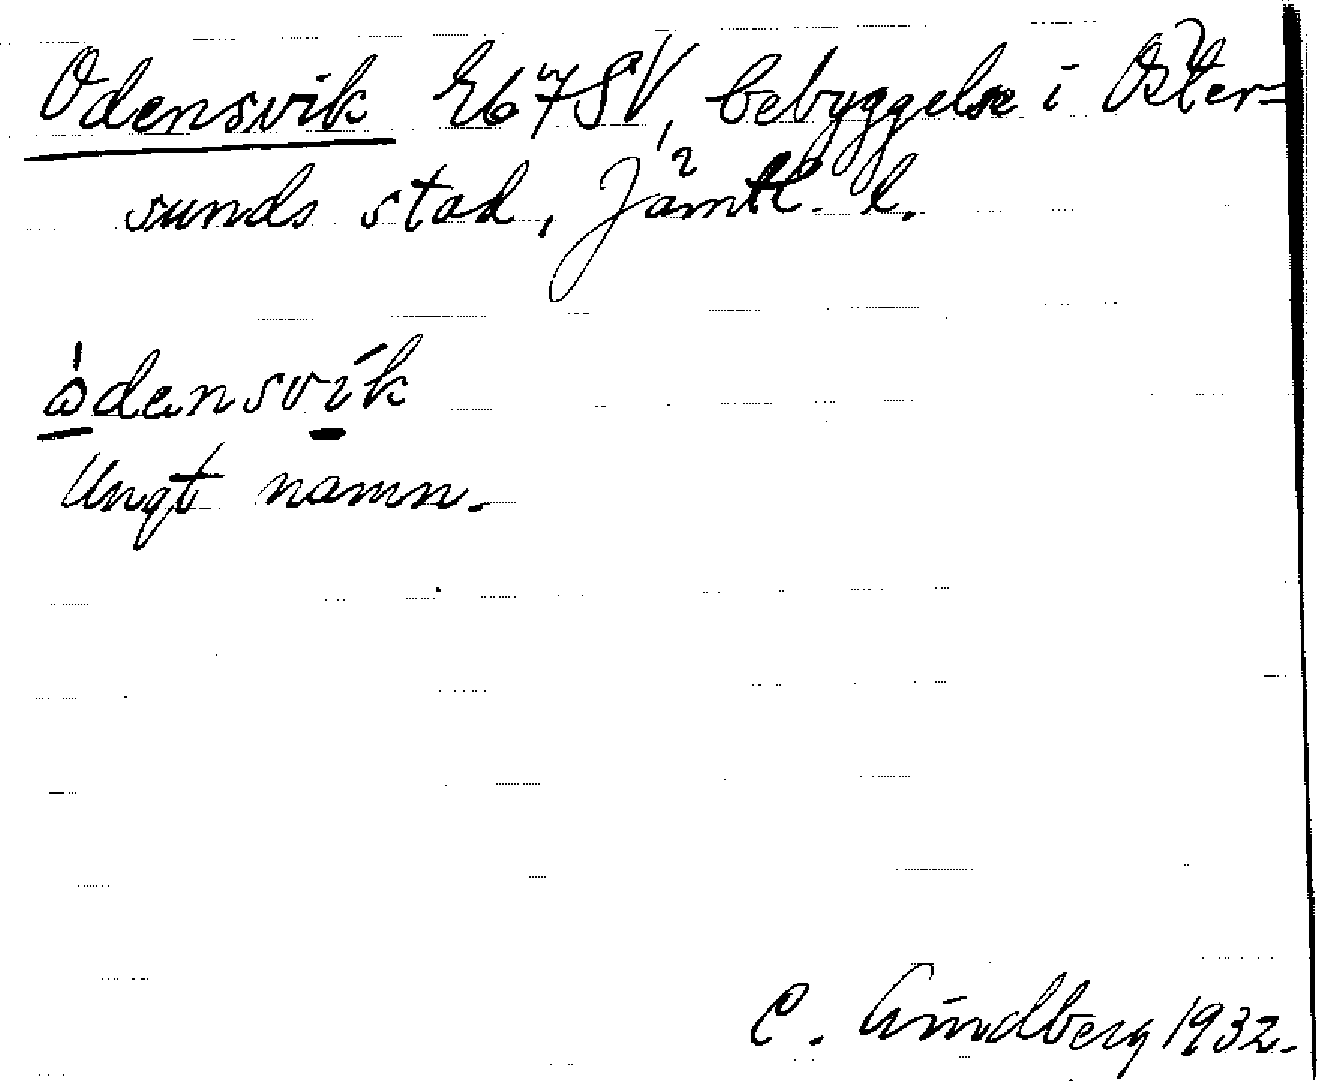 Odensvik E67SV, bebyggelse i Öster=
sunds stad, Jämtl. l.
òdensvík
Ungt namn.
C. Lindberg 1932.